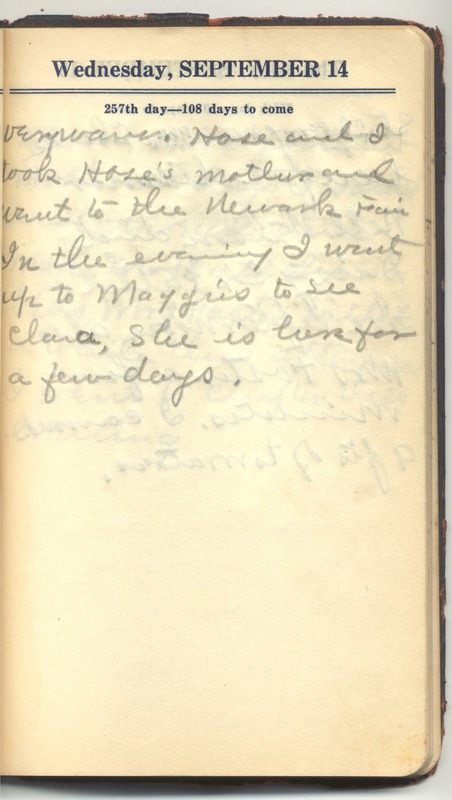 Wednesday, SEPTEMBER 14
257th day—108 days to come
very warm. Hose and I
took Hose's mother and
went to the Newark Fair
In the evening I went
up to to see
Clara, She is here for
a few days.